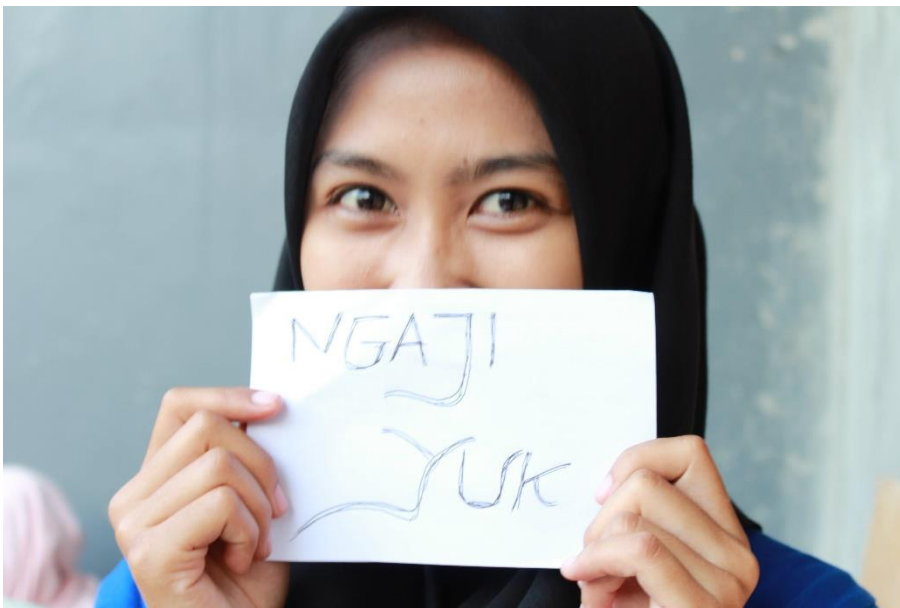 NGAJI
YUK